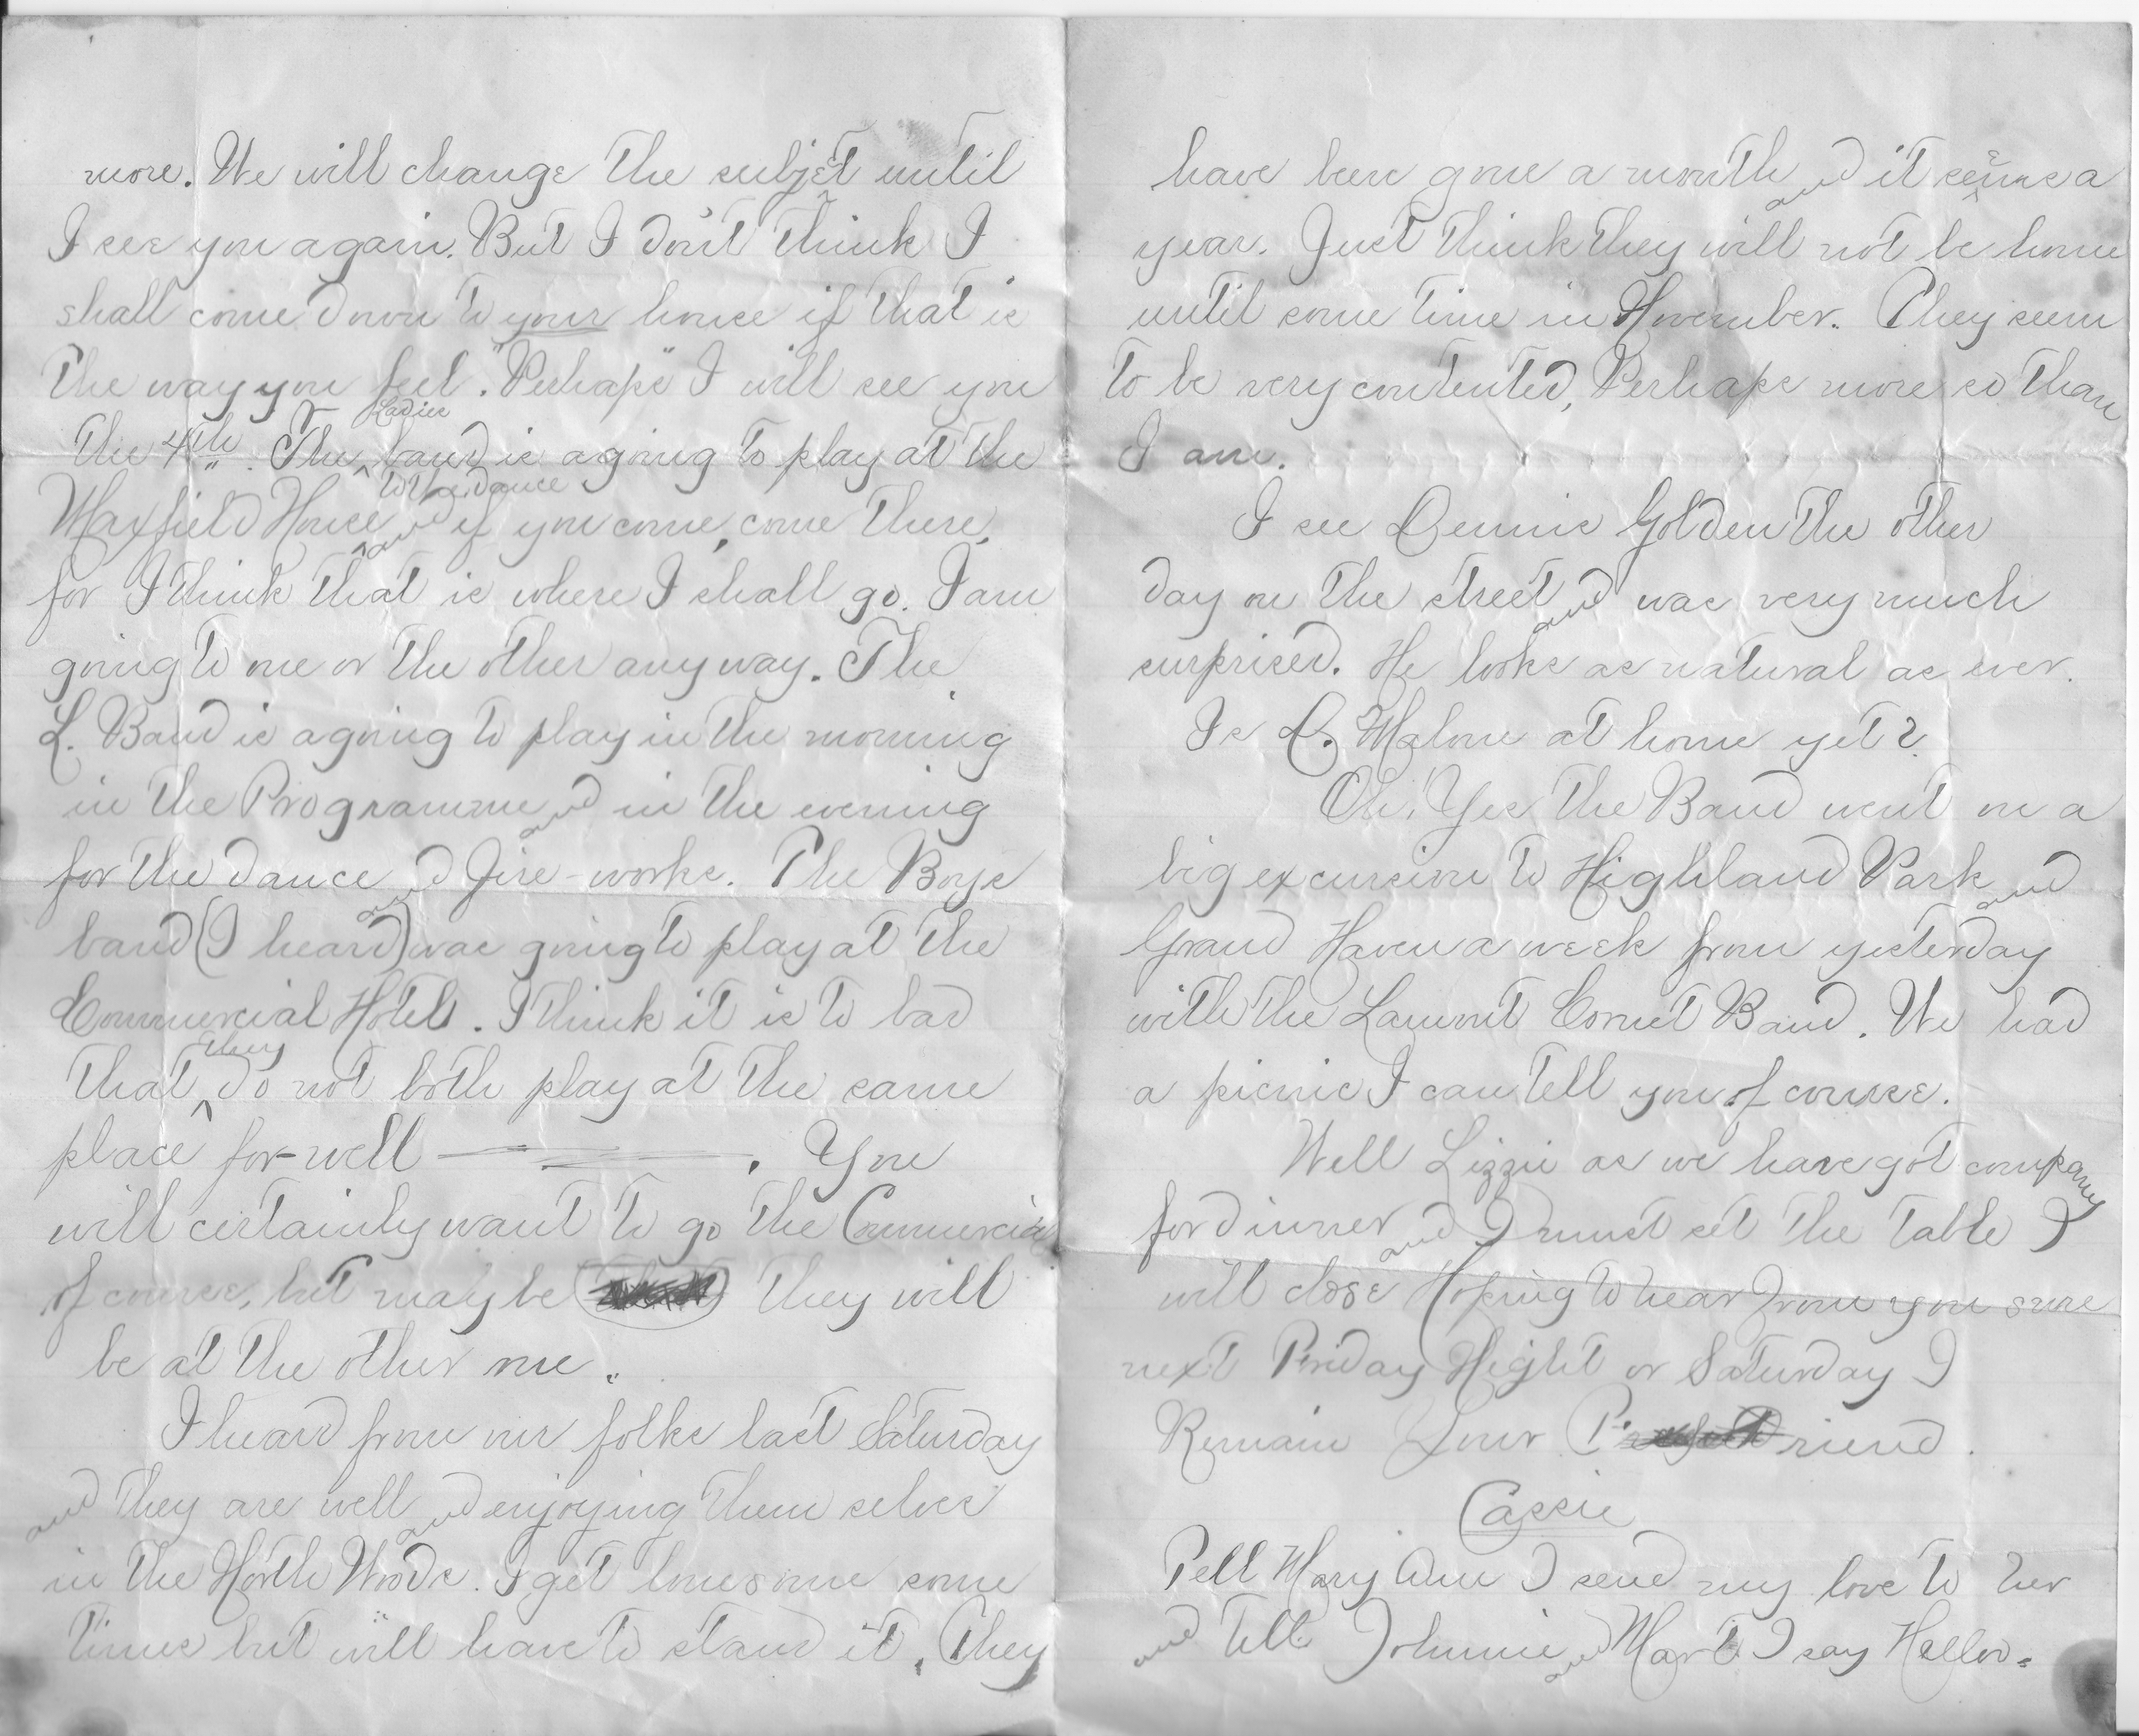 more. We will change the subjet until
I see you again. But I don't think I
shall come down to your house if that is
the way you feel. "Perhaps" I will see you
the 4th. The Ladies band is agoing to play at the
Maxfield House to the dance and if you come, come there,
for I think that is where I shall go. I am
going to one or the other anyway. The
L. Band is agoing to play in the morning
in the Programme and in the evening
for the dance and Fire-works. The Boys
band (I heard) was going to play at the
Commercial Hotel. I think it is to bad
that they do not both play at the same
place for-well ———. You
will certainly want to go the Commercial
of course, but maybe they will
be at the other one.
I heard from our folks last Saturday
and they are well and enjoying them selves
in the North Woods. I get lonesome some
times but will have to stand it. They
have been gone a month and it seems a
year. Just think they will not be home
until some time in November. They seem
to be very contented, Perhaps more so than
I am.
I see Dennis Golden the other
day on the street and was very much
surprised. He looks as natural as ever.
Is D. Malone at home yet?
Oh, Yes the Band went on a
big excursion to Highland Park and
Grand Haven a week from yesterday
with the Lamont Cornet Band. We had
a picnic I can tell you of course.
Well Lizzie as we have got company
for dinner and I must set the table I
will close Hoping to hear from you sure
next Friday Night or Saturday I
Remain Your Friend.
Cassie
Tell Mary Ann I send my love to her
and tell Johnnie and Mart I say Hellow.